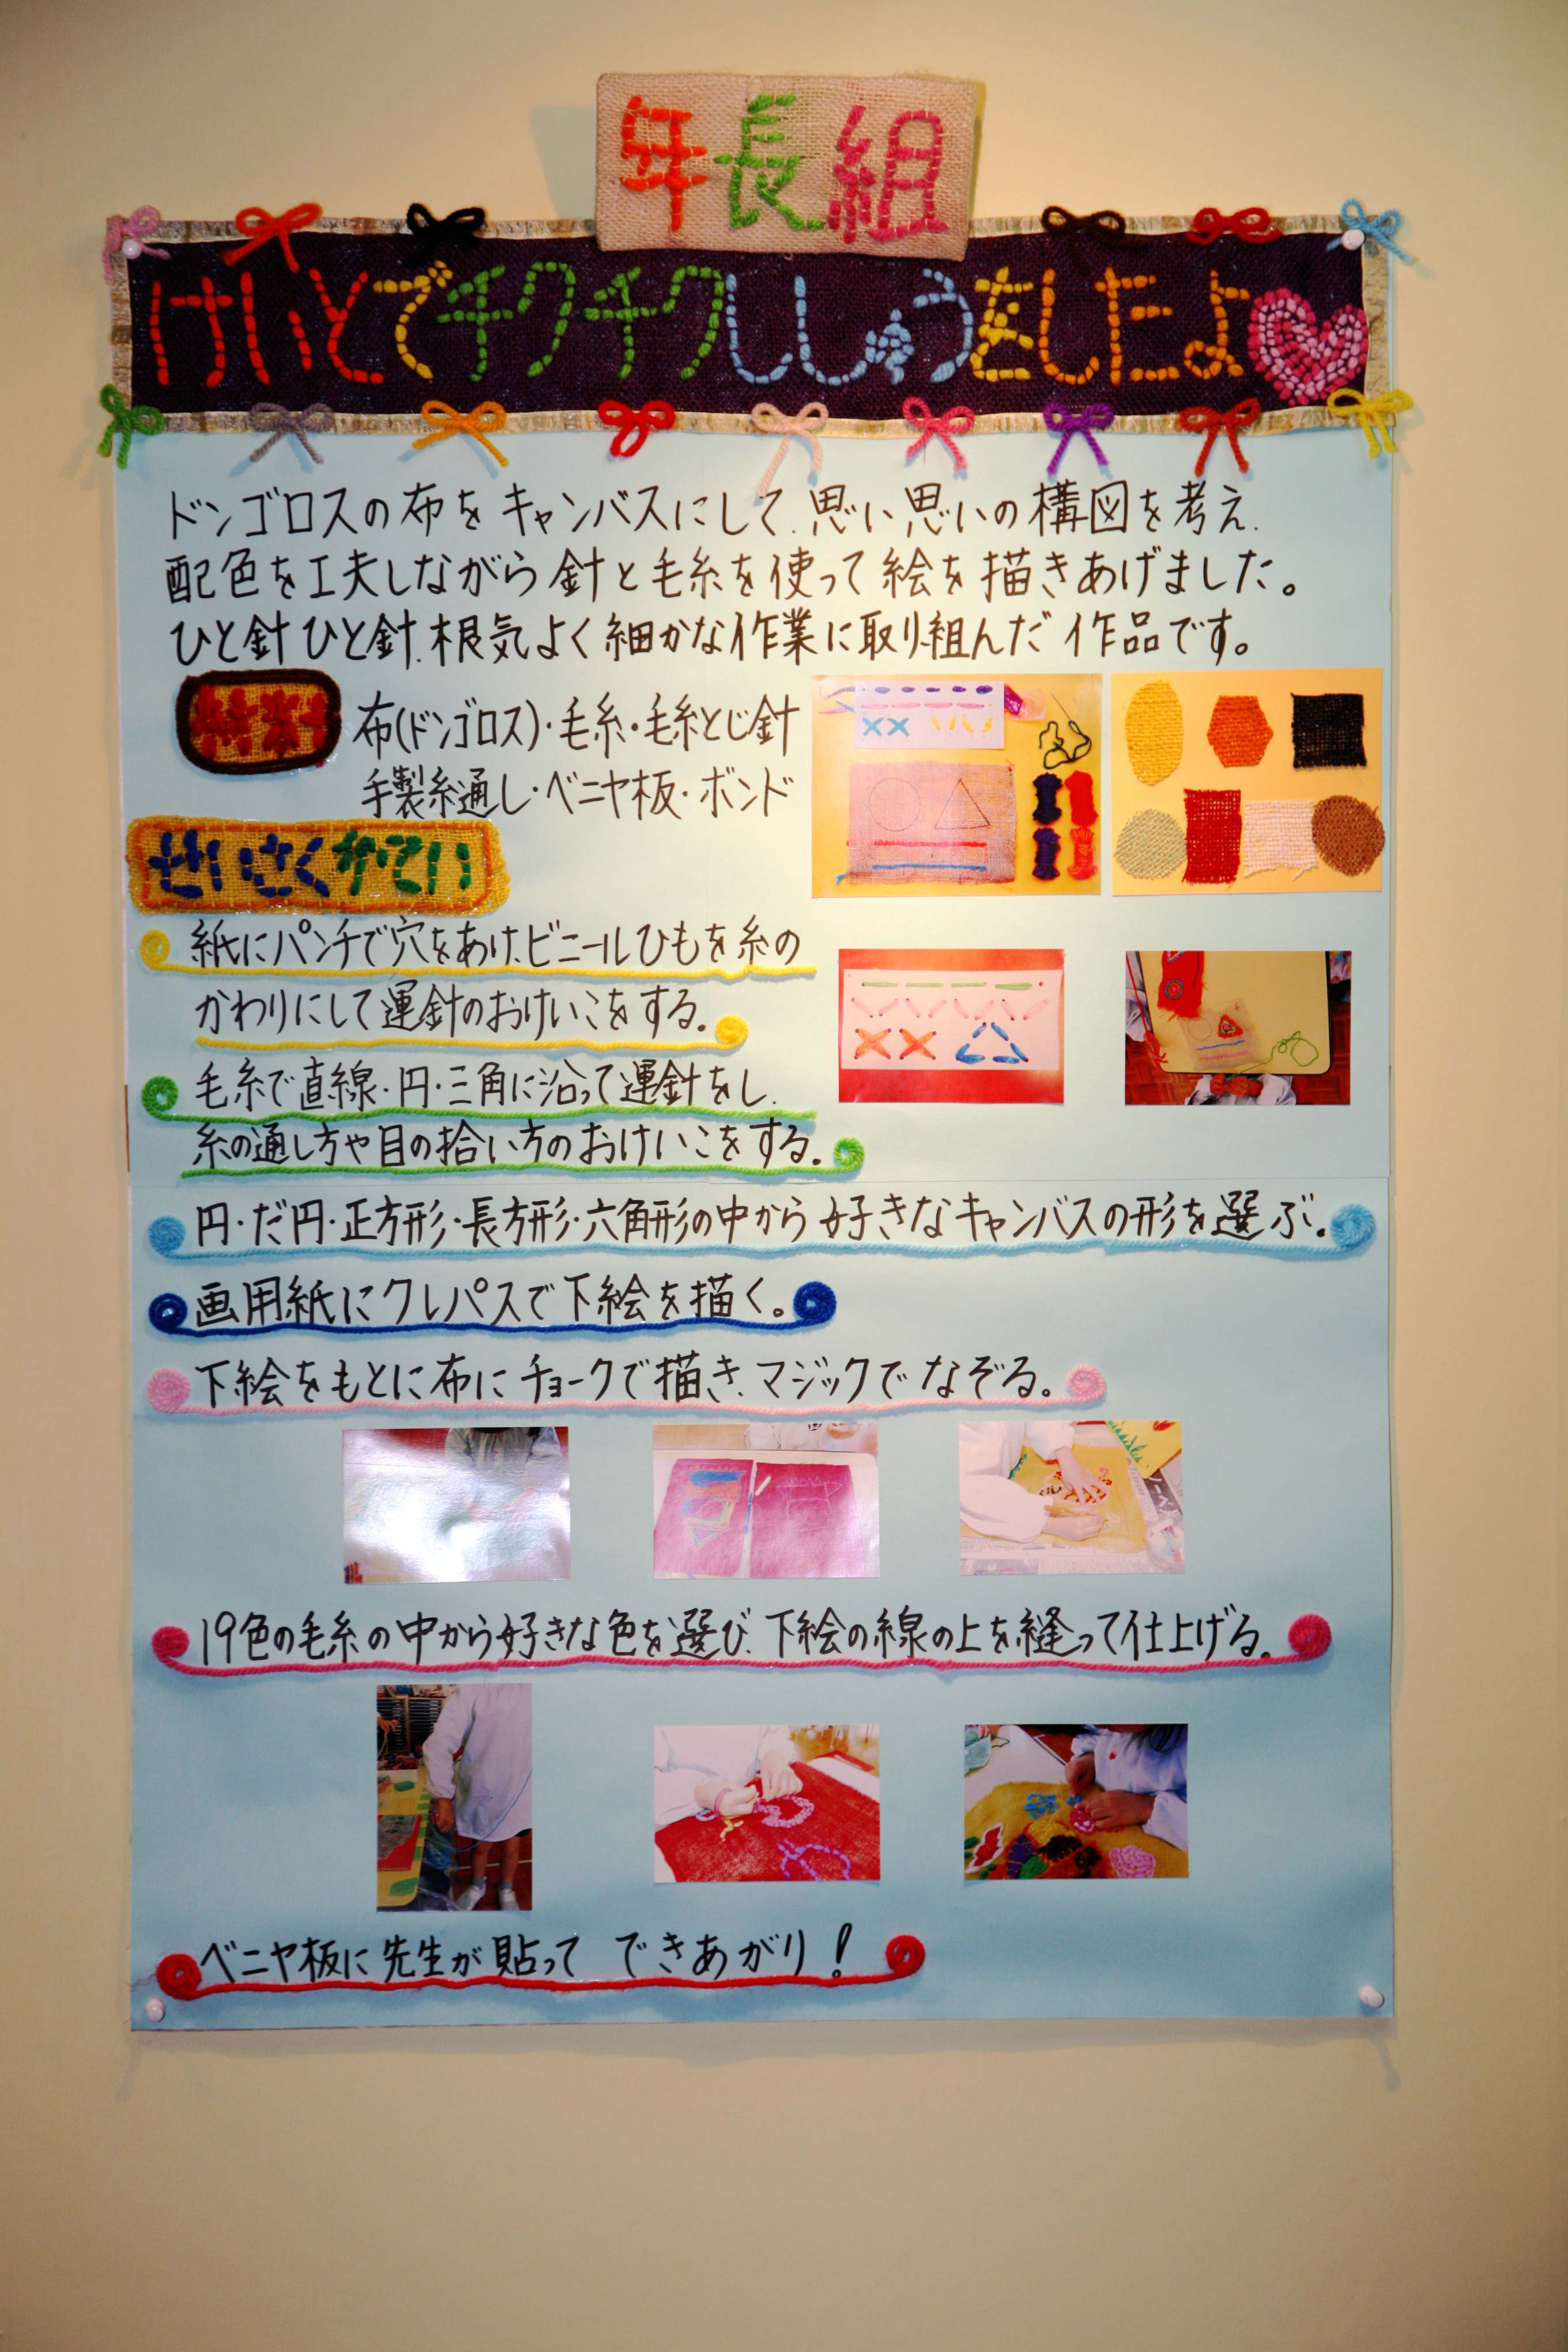 年長組
けいとでチクチクししゅうをしたよ
ドンゴロスの布をキャンバスにして、思い思いの構図を考え、
配色を工夫しながら針と毛糸を使って絵を描きあげました。
ひと針ひと針、根気よく細かな作業に取り組んだ作品です。
材料
布(ドンゴロス)・毛糸・毛糸とじ針
手製糸通し・ベニヤ板・ボンド
せいさくかてい
紙にパンチで穴をあけ、ビニールひもを糸の
かわりにして運針のおけいこをする。
毛糸で直線・円・三角に沿って運針をし、
糸の通し方や目の拾い方のおけいこをする。
円・だ円・正方形・長方形・六角形の中から好きなキャンバスの形を選ぶ。
画用紙にクレパスで下絵を描く。
下絵をもとに布にチョークで描き、マジックでなぞる。
19色の毛糸の中から好きな色を選び、下絵の線の上を縫って仕上げる。
ベニヤ板に先生が貼って できあがり!